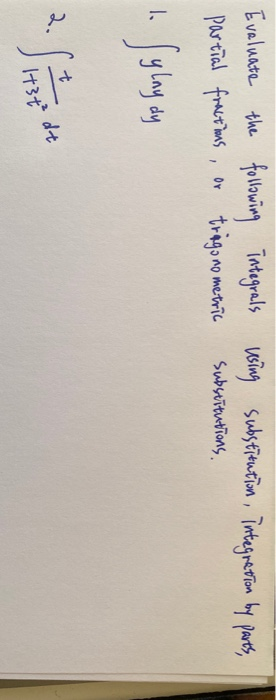 Evaluate the following integrals using substitution, integration by parts,
partial fractions, or trigonometric substitutions.
1. ∫ y ln y dy
2. ∫ t/(1+3t²) dt